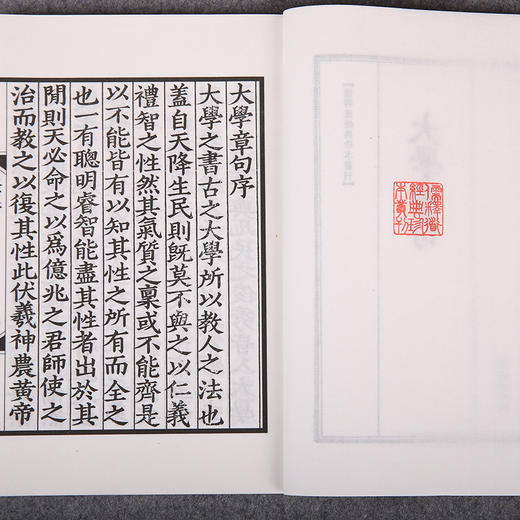 大學章句序
大學之書古之大學所以教人之法也
蓋自天降生民則既莫不與之以仁義
禮智之性然其氣質之稟或不能齊是
以不能皆有以知其性之所有而全之
也一有聰明睿智能盡其性者出於其
閒則天必命之以爲億兆之君師使之
治而教之以復其性此伏羲神農黃帝
儒釋道
經典珍
本叢刊